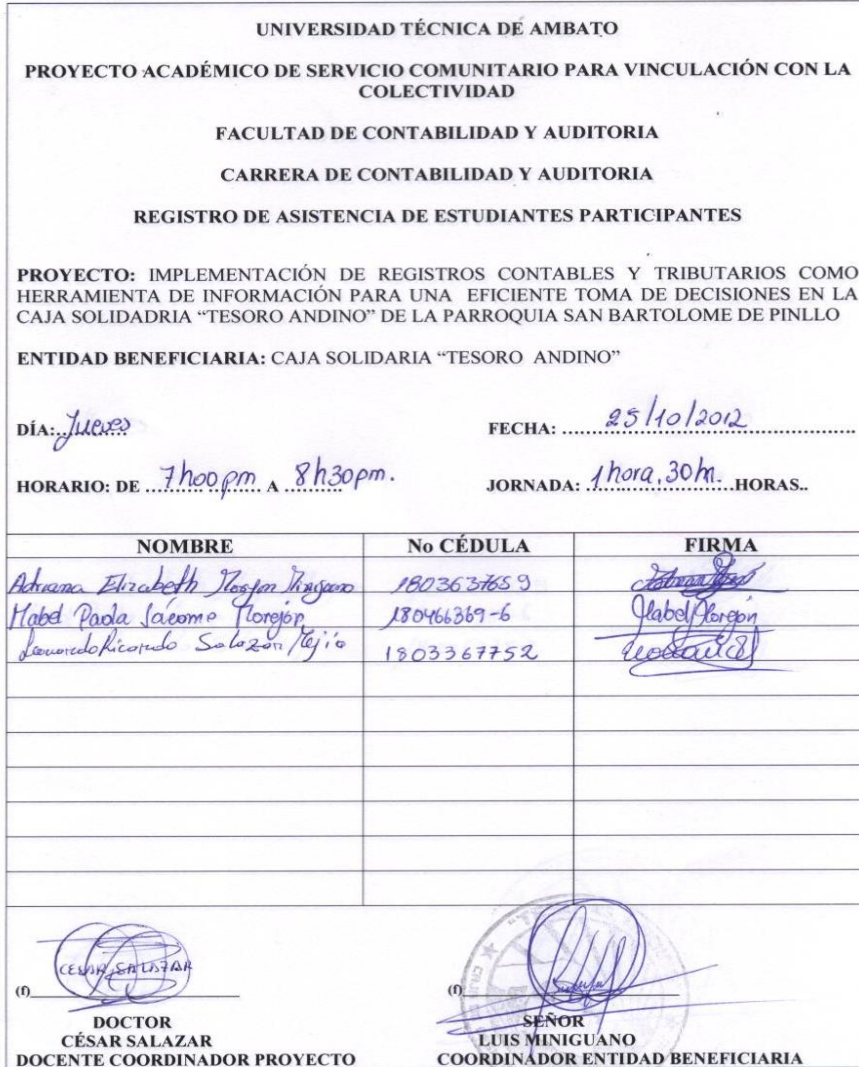 UNIVERSIDAD TÉCNICA DE AMBATO
PROYECTO ACADÉMICO DE SERVICIO COMUNITARIO PARA VINCULACIÓN CON LA
COLECTIVIDAD
FACULTAD DE CONTABILIDAD Y AUDITORIA
CARRERA DE CONTABILIDAD Y AUDITORIA
REGISTRO DE ASISTENCIA DE ESTUDIANTES PARTICIPANTES
PROYECTO: IMPLEMENTACIÓN DE REGISTROS CONTABLES Y TRIBUTARIOS COMO
HERRAMIENTA DE INFORMACIÓN PARA UNA EFICIENTE TOMA DE DECISIONES EN LA
CAJA SOLIDADRIA “TESORO ANDINO” DE LA PARROQUIA SAN BARTOLOME DE PINLLO
ENTIDAD BENEFICIARIA: CAJA SOLIDARIA “TESORO ANDINO”
DÍA: Jueves FECHA: 25/10/2012
HORARIO: DE 7h00pm A 8h30pm. JORNADA: 1hora, 30m. HORAS..
NOMBRE No CÉDULA FIRMA
Adriana Elizabeth 1803637659
Mabel Paola Jácome Morejón 180466369-6 Mabel Morejón
Leonardo Ricardo Salazar Mejía 1803367752
CESAR SALAZAR
(f) (f)
DOCTOR SEÑOR
CÉSAR SALAZAR LUIS MINIGUANO
DOCENTE COORDINADOR PROYECTO COORDINADOR ENTIDAD BENEFICIARIA